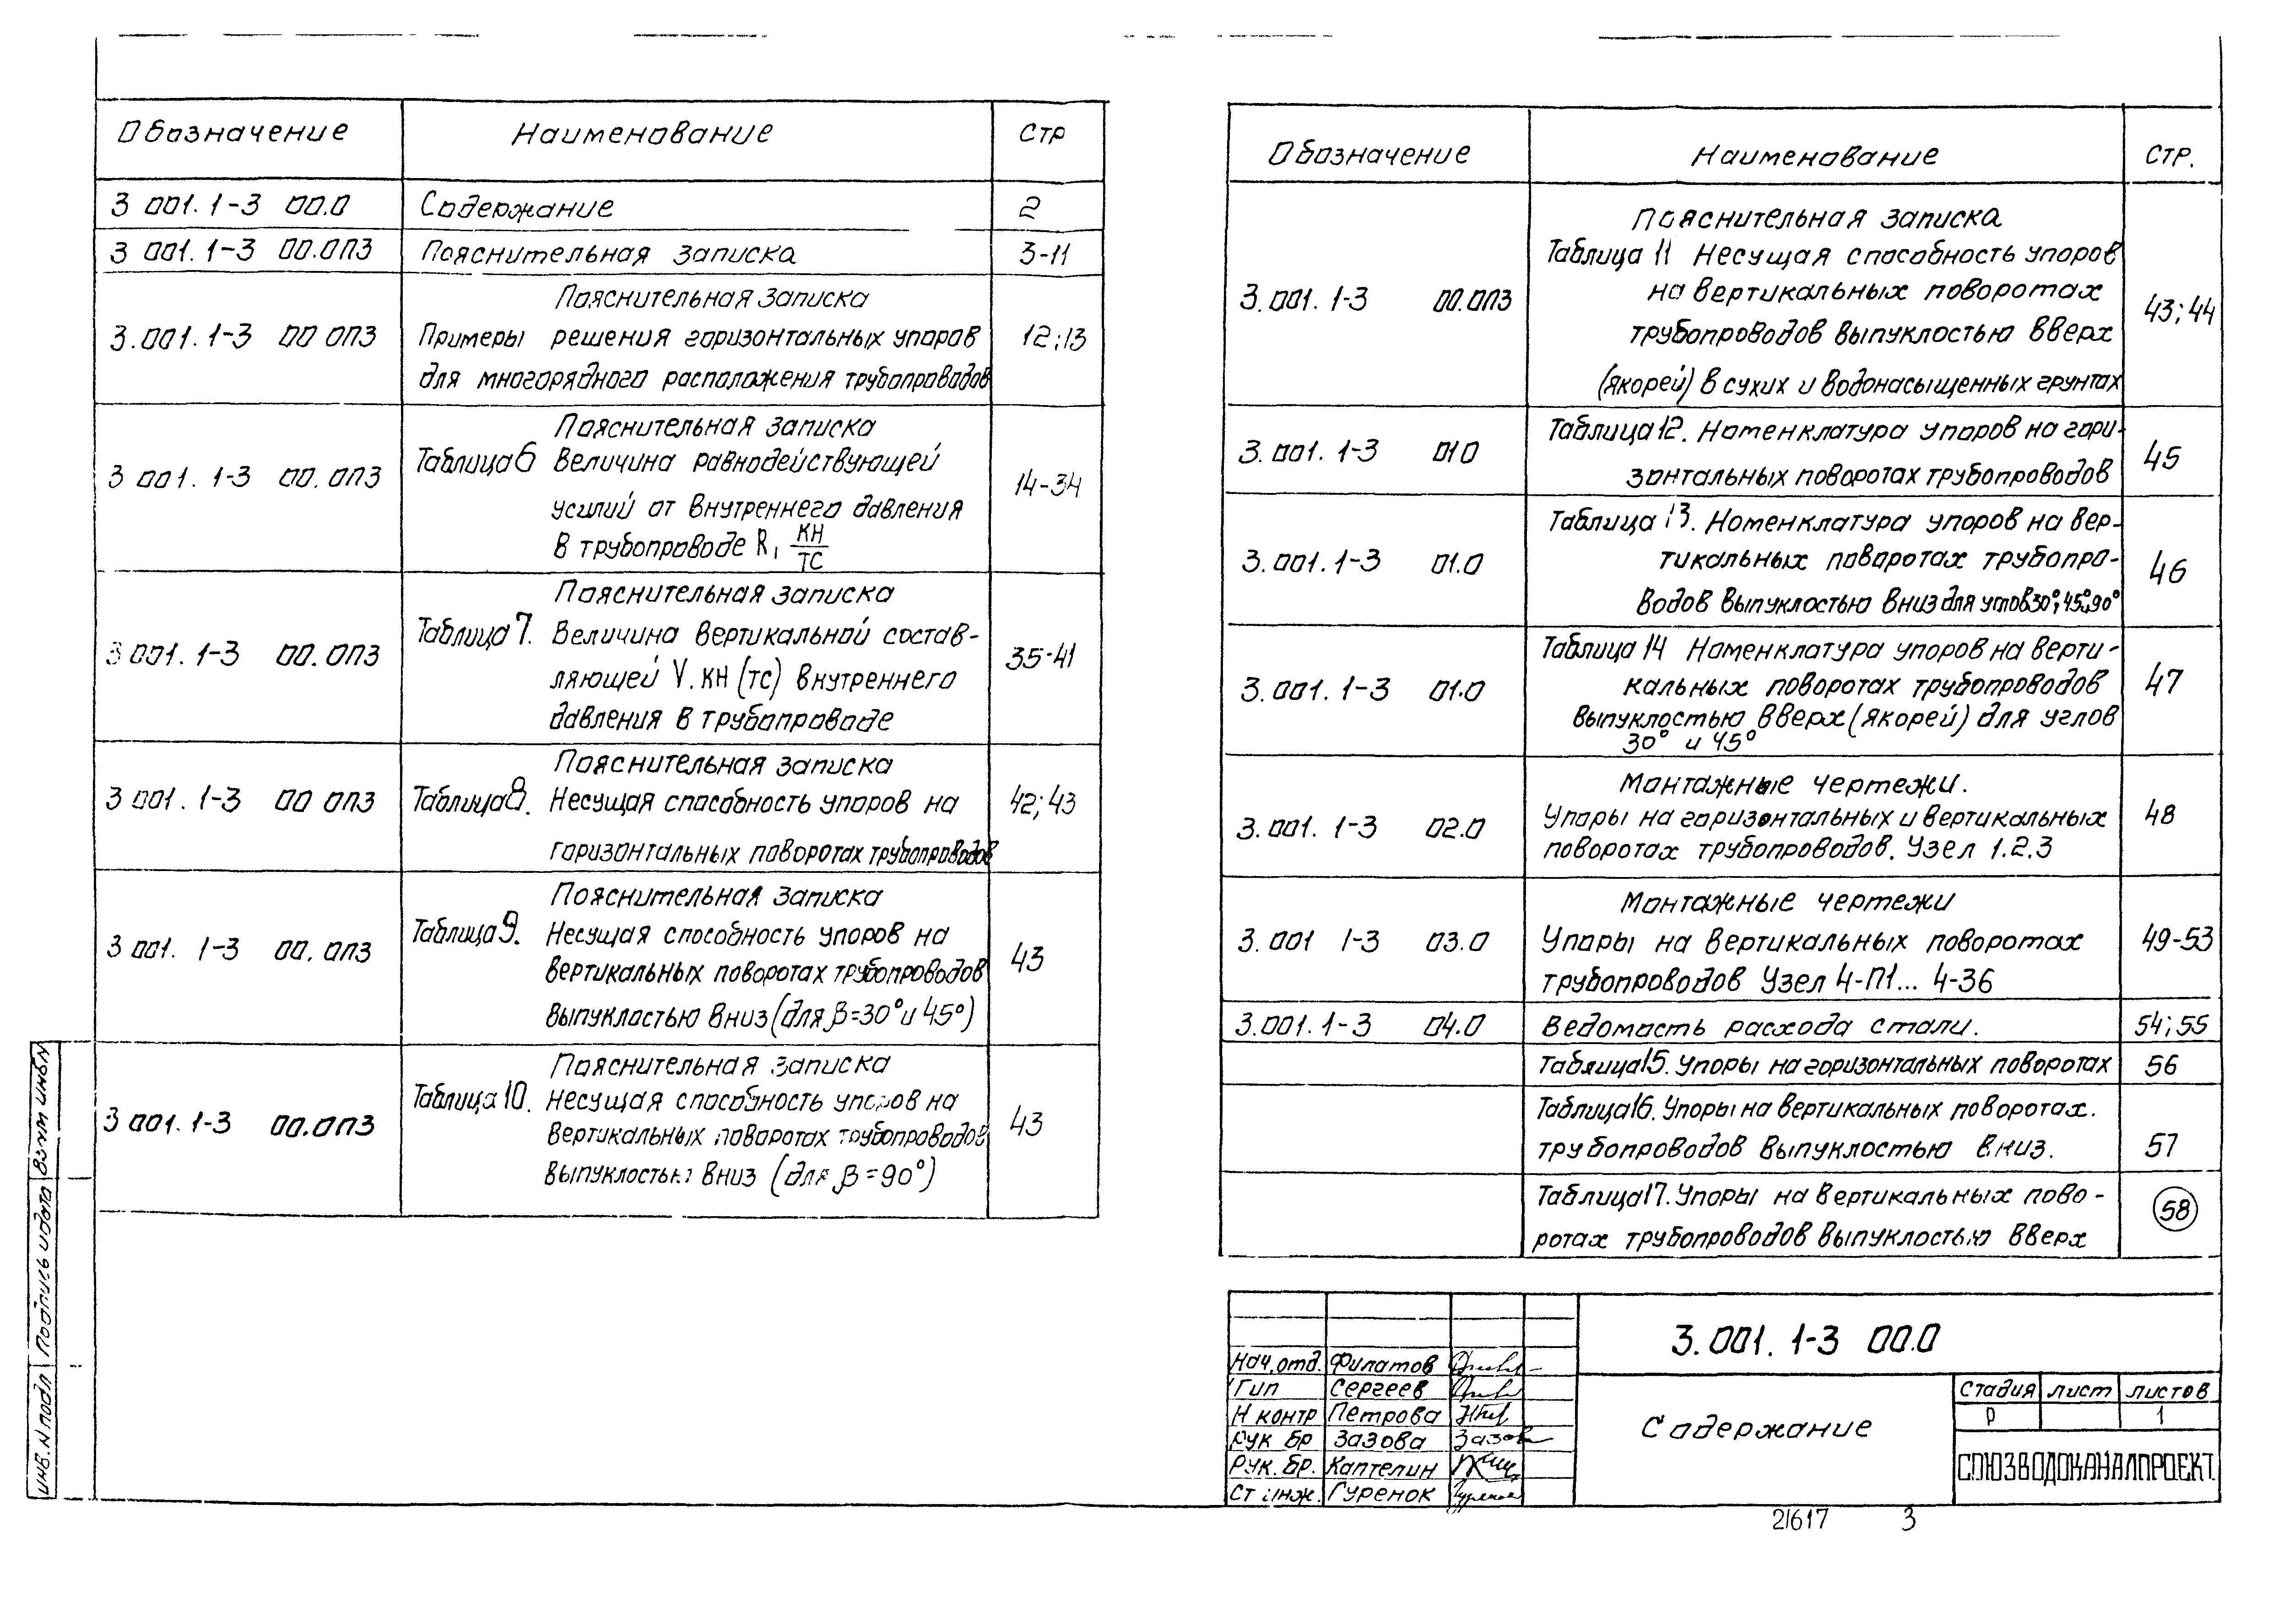 Обозначение Наименование Стр
3 001. 1-3 00.0 Содержание 2
3 001. 1-3 00.0ПЗ Пояснительная записка 3-11
Пояснительная записка
3.001. 1-3 00 0ПЗ Примеры решения горизонтальных упоров 12;13
для многорядного расположения трубопроводов
Пояснительная записка
Таблица 6 Величина равнодействующей
3 001. 1-3 00. 0ПЗ 14-34
усилий от внутреннего давления
в трубопроводе R, КН/ТС
Пояснительная записка
Таблица 7. Величина вертикальной состав-
3 001. 1-3 00. 0ПЗ 35-41
ляющей V. КН (ТС) внутреннего
давления в трубопроводе
Пояснительная записка
3 001. 1-3 00 0ПЗ Таблица 8. Несущая способность упоров на 42; 43
горизонтальных поворотах трубопроводов
Пояснительная записка
Таблица 9. Несущая способность упоров на
3 001. 1-3 00. 0ПЗ 43
вертикальных поворотах трубопроводов
выпуклостью вниз (для β=30° и 45°)
Пояснительная записка
Таблица 10. Несущая способность упоров на
3 001. 1-3 00.0ПЗ 43
вертикальных поворотах трубопроводов
выпуклостью вниз (для β=90°)
Обозначение Наименование Стр.
Пояснительная записка
Таблица 11 Несущая способность упоров
3.001. 1-3 00.0ПЗ на вертикальных поворотах 43; 44
трубопроводов выпуклостью вверх
(якорей) в сухих и водонасыщенных грунтах
Таблица 12. Номенклатура упоров на гори-
3.001. 1-3 01 0 45
зонтальных поворотах трубопроводов
Таблица 13. Номенклатура упоров на вер-
3.001. 1-3 01.0 тикальных поворотах трубопро- 46
водов выпуклостью вниз для углов 30°; 45°; 90°
Таблица 14 Номенклатура упоров на верти-
3.001. 1-3 01.0 кальных поворотах трубопроводов 47
выпуклостью вверх (якорей) для углов
30° и 45°
Монтажные чертежи.
3.001. 1-3 02.0 Упоры на горизонтальных и вертикальных 48
поворотах трубопроводов. Узел 1.2.3
Монтажные чертежи
3.001 1-3 03.0 Упоры на вертикальных поворотах 49-53
трубопроводов Узел 4-П1... 4-36
3.001. 1-3 04.0 Ведомость расхода стали. 54; 55
Таблица 15. Упоры на горизонтальных поворотах 56
Таблица 16. Упоры на вертикальных поворотах.
трубопроводов выпуклостью вниз. 57
Таблица 17. Упоры на вертикальных пово- 58
ротах трубопроводов выпуклостью вверх
3.001. 1-3 00.0
Нач. отд. Филатов
Гип Сергеев
Н контр Петрова
Рук бр Зазова Зазова
Рук. бр. Каптелин
Ст инж. Гуренок
Содержание
Стадия Лист Листов
Р 1
СОЮЗВОДОКАНАЛПРОЕКТ
21617 3
Инв. N подл Подпись и дата Взам инв N